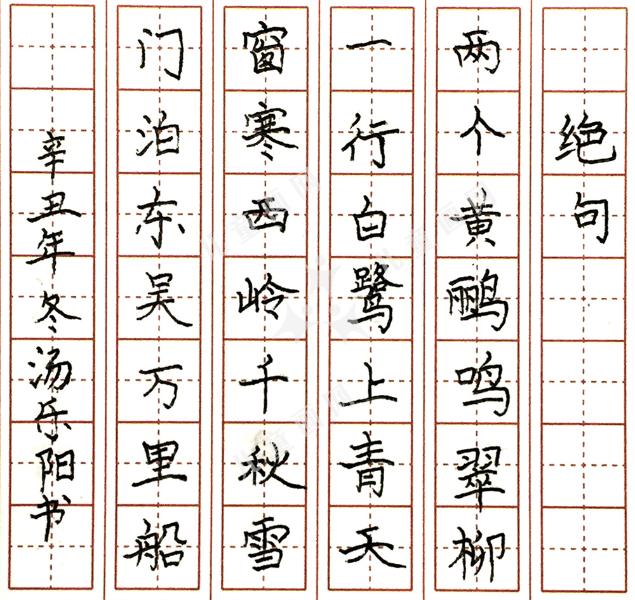 绝句
两个黄鹂鸣翠柳
一行白鹭上青天
窗寒西岭千秋雪
门泊东吴万里船
辛丑年冬汤乐阳书